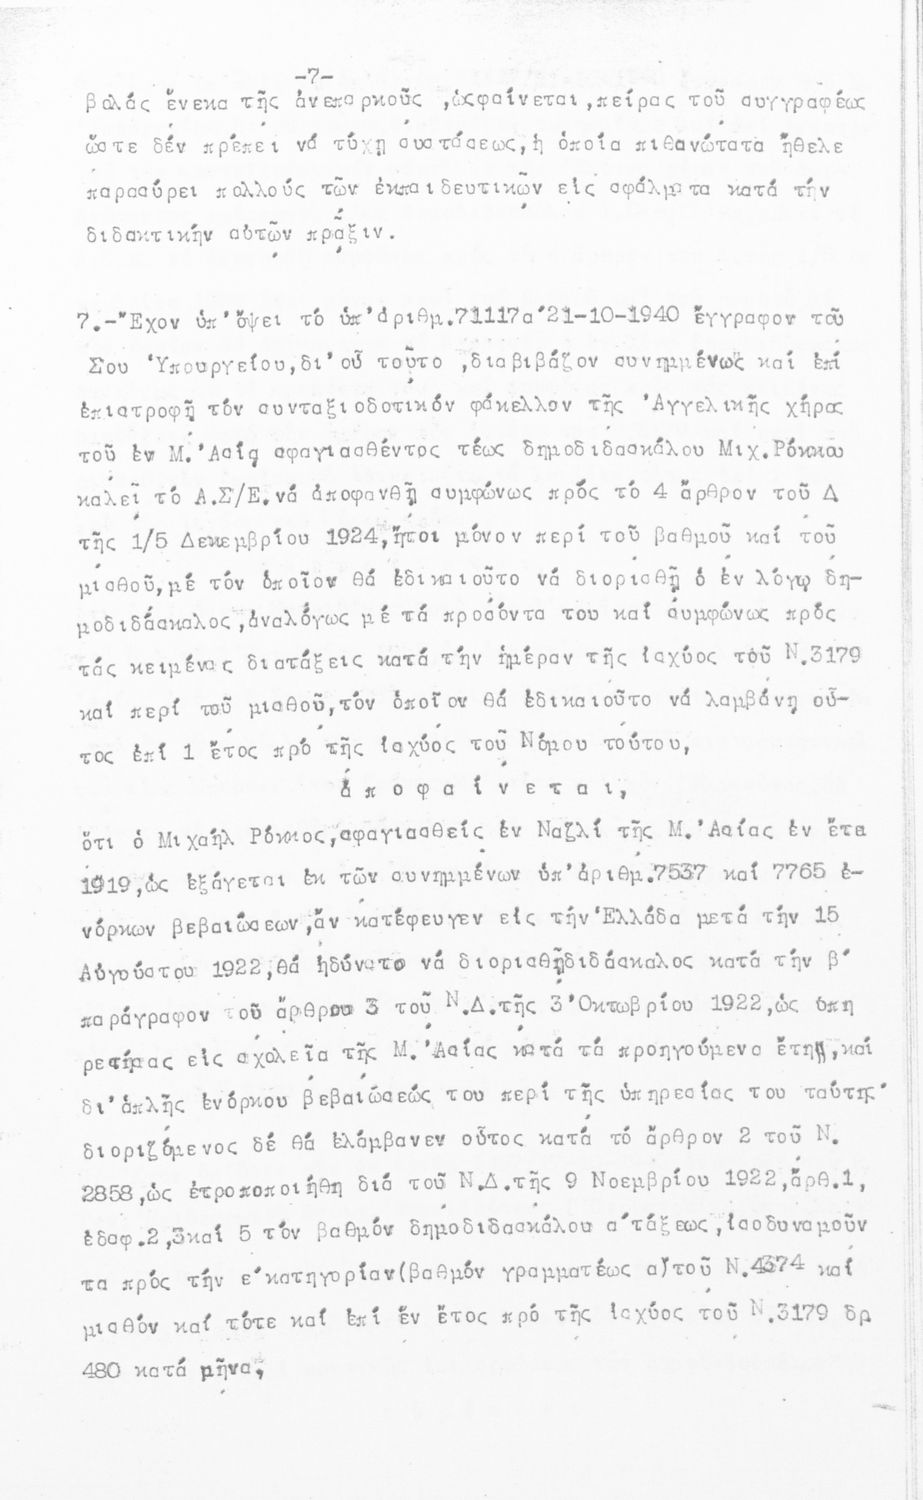 -7-
βολάς ἕνεκα τῆς ἀνεπαρκοῦς ,ὡςφαίνεται,πείρας τοῦ συγγραφέως
ὥστε δέν πρέπει νά τύχῃ συστάσεως,ἡ ὁποία πιθανώτατα ἤθελε
παρασύρει πολλούς τῶν ἐκπαιδευτικῶν εἰς σφάλματα κατά τήν
διδακτικήν αὐτῶν πρᾶξιν.
7.-Ἔχον ὑπ'ὄψει τό ὑπ'ἀριθμ.71117α'21-10-1940 ἔγγραφον τοῦ
Σου Ὑπουργείου,δι'οὗ τοῦτο ,διαβιβάζον συνημμένως καί ἐπί
ἐπιστροφῇ τόν συνταξιοδοτικόν φάκελλον τῆς Ἀγγελικῆς χήρας
τοῦ ἐν Μ.Ἀσίᾳ σφαγιασθέντος τέως δημοδιδασκάλου Μιχ.Ρόκκου
καλεῖ τό Α.Σ/Ε.νά ἀποφανθῇ συμφώνως πρός τό 4 ἄρθρον τοῦ Δ
τῆς 1/5 Δεκεμβρίου 1924,ἤτοι μόνον περί τοῦ βαθμοῦ καί τοῦ
μισθοῦ,μέ τόν ὁποῖον θά ἐδικαιοῦτο νά διορισθῇ ὁ ἐν λόγῳ δη-
μοδιδάσκαλος,ἀναλόγως μέ τά προσόντα του καί συμφώνως πρός
τάς κειμένας διατάξεις κατά τήν ἡμέραν τῆς ἰσχύος τοῦ Ν.3179
καί περί τοῦ μισθοῦ,τόν ὁποῖον θά ἐδικαιοῦτο νά λαμβάνῃ οὗ-
τος ἐπί 1 ἔτος πρό τῆς ἰσχύος τοῦ Νόμου τούτου,
ἀ π ο φ α ί ν ε τ α ι,
ὅτι ὁ Μιχαήλ Ρόκκος,σφαγιασθείς ἐν Ναζλί τῆς Μ.Ἀσίας ἐν ἔτει
1919,ὡς ἐξάγεται ἐκ τῶν συνημμένων ὑπ'ἀριθμ.7537 καί 7765 ἐ-
νόρκων βεβαιώσεων,ἄν κατέφευγεν εἰς τήν Ἑλλάδα μετά τήν 15
Αὐγούστου 1922,θά ἠδύνατο νά διορισθῇδιδάσκαλος κατά τήν β'
παράγραφον τοῦ ἄρθρου 3 τοῦ Ν.Δ.τῆς 3 Ὀκτωβρίου 1922,ὡς ὑπη
ρετήσας εἰς σχολεῖα τῆς Μ.Ἀσίας κατά τά προηγούμενα ἔτη,καί
δι'ἁπλῆς ἐνόρκου βεβαιώσεώς του περί τῆς ὑπηρεσίας του ταύτης'
διοριζόμενος δέ θά ἐλάμβανεν οὗτος κατά τό ἄρθρον 2 τοῦ Ν.
2858,ὡς ἐτροποποιήθη διά τοῦ Ν.Δ.τῆς 9 Νοεμβρίου 1922,ἄρθ.1,
ἐδαφ.2,3καί 5 τόν βαθμόν δημοδιδασκάλου α'τάξεως,ἰσοδυναμοῦν
τα πρός τήν ε'κατηγορίαν(βαθμόν γραμματέως α)τοῦ Ν.4374 καί
μισθόν καί τότε καί ἐπί ἕν ἔτος πρό τῆς ἰσχύος τοῦ Ν.3179 δρ
480 κατά μῆνα,